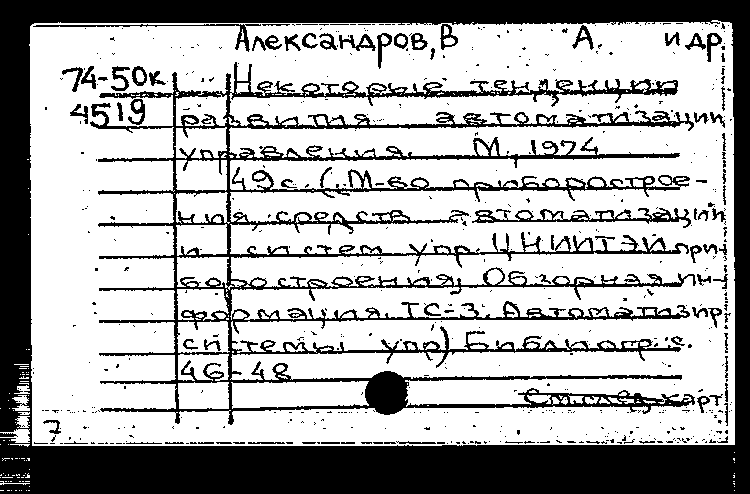 Александров, В А. и др.
74-50к Некоторые тенденции
4519 развития автоматизации
управления. М., 1974
49с. (М-во приборострое-
ния, средств автоматизации
и систем упр. ЦНИИТЭИ при-
боростроения, Обзорная ин-
формация. ТС-3. Автоматизир
системы упр) Библиогр: с.
46-48
См. след. карт
7